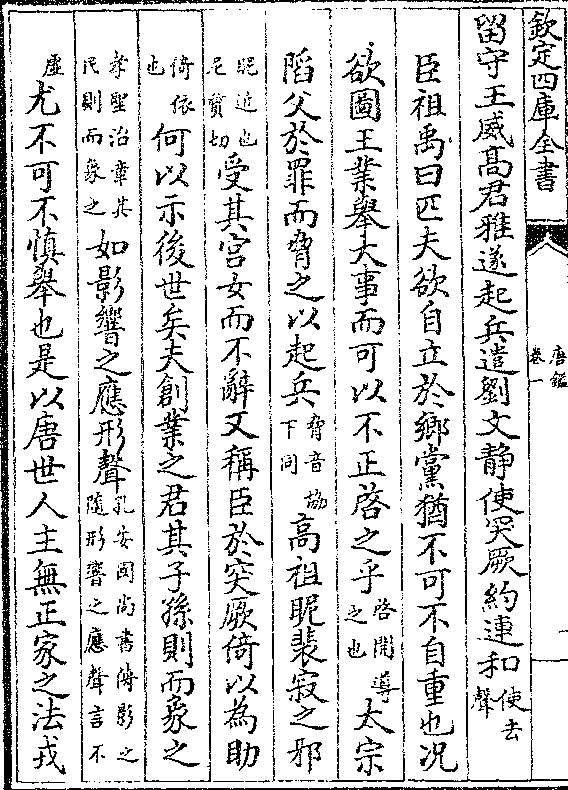 欽定四庫全書
唐鑑
卷一
一
留守王威髙君雅遂起兵遣劉文静使突厥約連和使去聲
臣祖禹曰匹夫欲自立於鄉黨猶不可不自重也况
欲圖王業舉大事而可以不正啓之乎啓開導之也太宗
䧟父於罪而脅之以起兵脅音協下同高祖昵裴寂之邪
昵近也尼質切受其宫女而不辭又稱臣於突厥倚以為助
倚依也何以示後世矣夫創業之君其子孫則而象之
孝聖治章其民則而象之如影響之應形聲孔安國尚書傳影之隨形響之應聲言不
虚尤不可不慎舉也是以唐世人主無正家之法戎